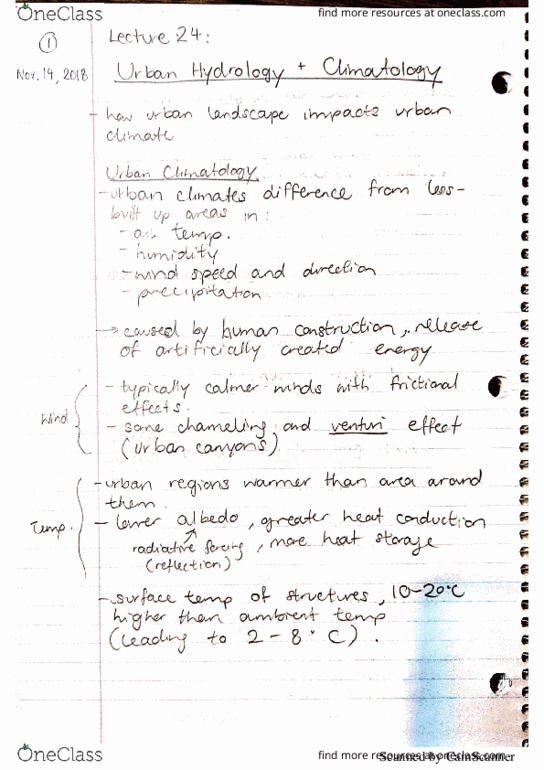 OneClass
find more resources at oneclass.com
1
Lecture 24:
Nov. 14, 2018
Urban Hydrology + Climatology
- how urban landscape impacts urban
climate
Urban Climatology
- urban climates difference from less-
built up areas in:
- air temp.
- humidity
- wind speed and direction
- precipitation
→ caused by human construction, release
of artificially created energy
- typically calmer winds with frictional
effects.
Wind
- some channeling and venturi effect
(urban canyons)
- urban regions warmer than area around
them
Temp.
- lower albedo, greater heat conduction
radiative forcing, more heat storage
(reflection)
- surface temp of structures, 10-20°C
higher than ambient temp
(leading to 2-8°C).
OneClass
find more resources at oneclass.com
Scanned by CamScanner